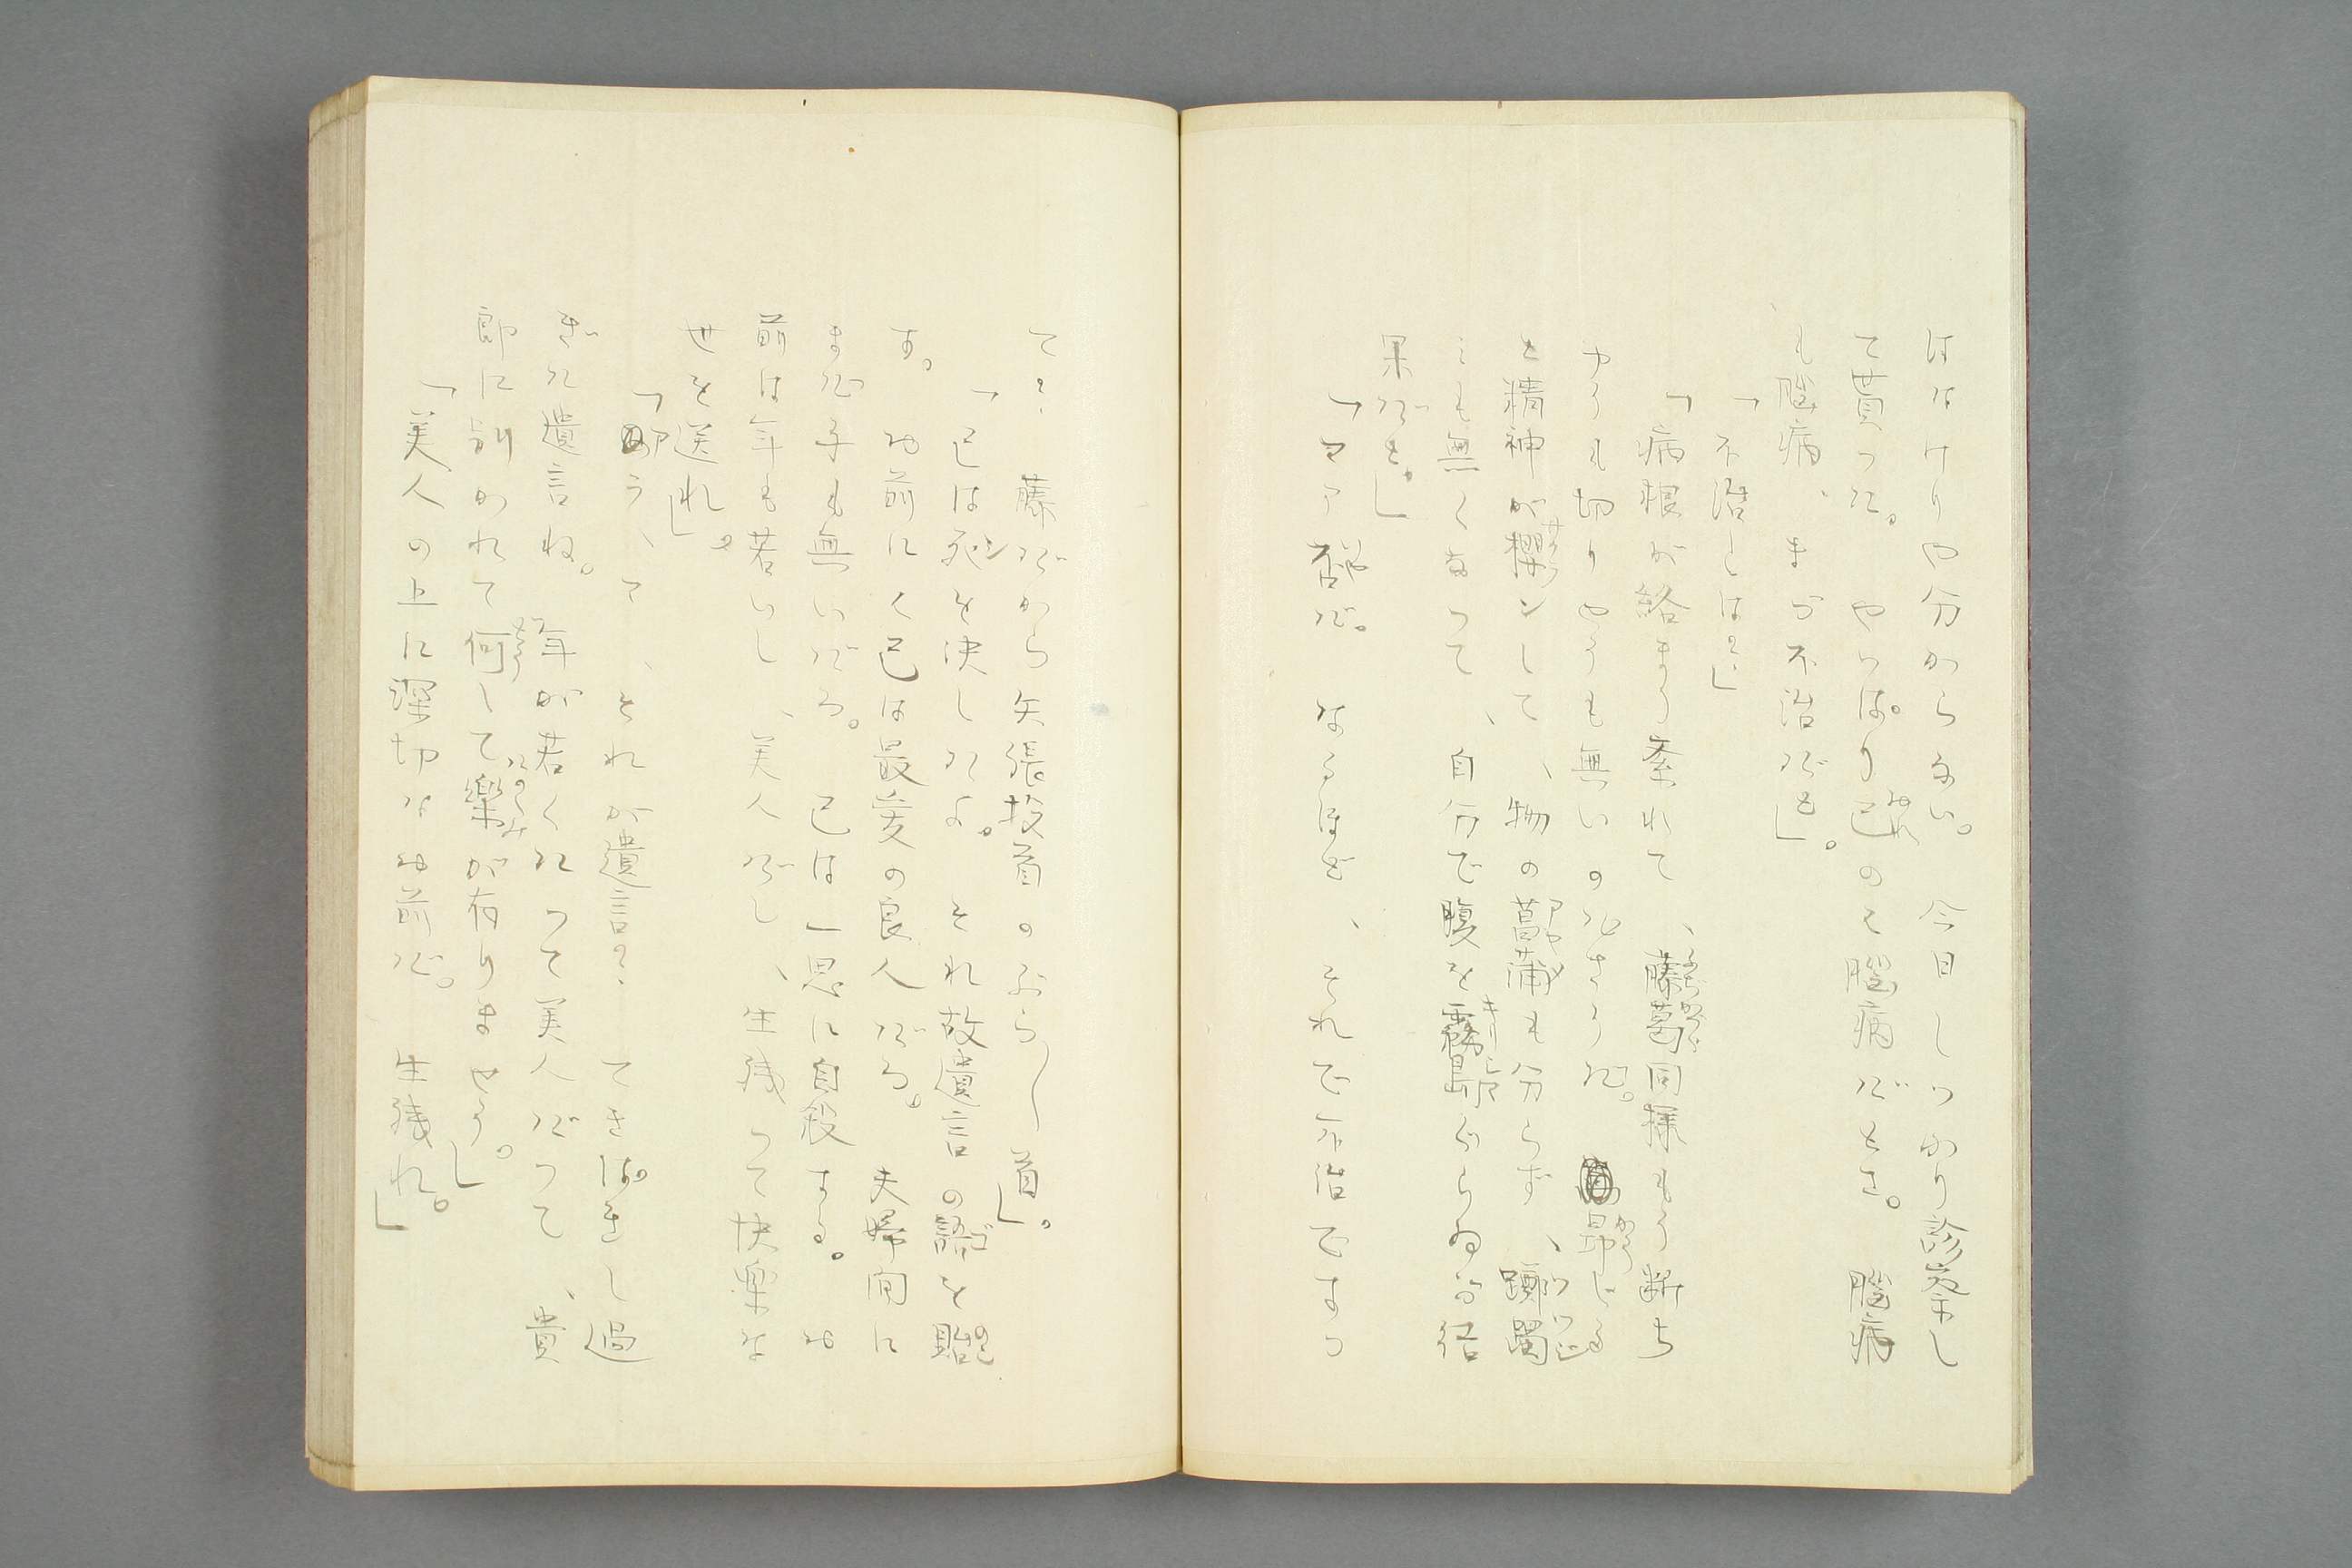 はなけりや分からない。今日しつかり診察し
て貰つた。やつぱり己のそ脳病だとさ。脳病
も脳病、まづ不治だと」。
「不治とは?」
「病根が絡まり紊れて、藤葛同様もう断ち
やうも切りやうも無いのださうだ。昴じる
と精神が櫻ンして、物の菖蒲も分らず、躑躅
も無くなつて、自分で腹を霧島ぐらゐな結
果だと。」
「マア否だ。なるほど、それで不治ですつ
て?藤だから矢張投首のぶらり首」。
「己は死を決したよ。それ故遺言の語を貽
す。お前にく己は最愛の良人だろ。夫婦間に
まだ子も無いだろ。己は一思に自殺する。お
前は年も若いし、美人だし、生残つて快楽な
世を送れ」。
「郎う、て、それが遺言?てきぱきし過
ぎた遺言ね。年が若くたつて美人だつて、貴
郎に別かれて何して楽が有りませう。」
「美人の上に深切なお前だ。生残れ。」